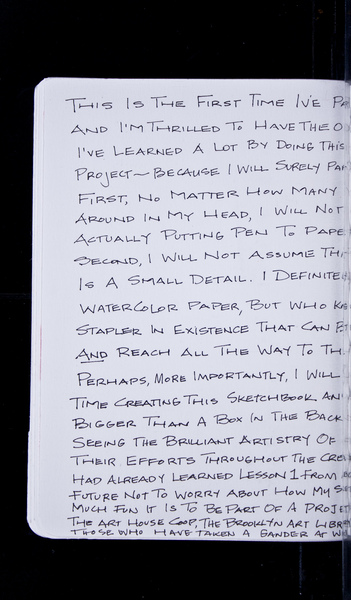 THIS IS THE FIRST TIME I'VE PA
AND I'M THRILLED TO HAVE THE O
I'VE LEARNED A LOT BY DOING THIS
PROJECT~BECAUSE I WILL SURELY PAR
FIRST, NO MATTER HOW MANY
AROUND IN MY HEAD, I WILL NOT
ACTUALLY PUTTING PEN TO PAPE
SECOND, I WILL NOT ASSUME TH
IS A SMALL DETAIL. I DEFINITE
WATERCOLOR PAPER, BUT WHO KN
STAPLER IN EXISTENCE THAT CAN
AND REACH ALL THE WAY TO TH
PERHAPS, MORE IMPORTANTLY, I WILL
TIME CREATING THIS SKETCHBOOK AN
BIGGER THAN A BOX IN THE BACK
SEEING THE BRILLIANT ARTISTRY OF
THEIR EFFORTS THROUGHOUT THE CRE
HAD ALREADY LEARNED LESSON 1 FROM
FUTURE NOT TO WORRY ABOUT HOW MY
MUCH FUN IT IS TO BE PART OF A PROJE
THE ART HOUSE COOP, THE BROOKLYN ART LIBR
THOSE WHO HAVE TAKEN A GANDER AT